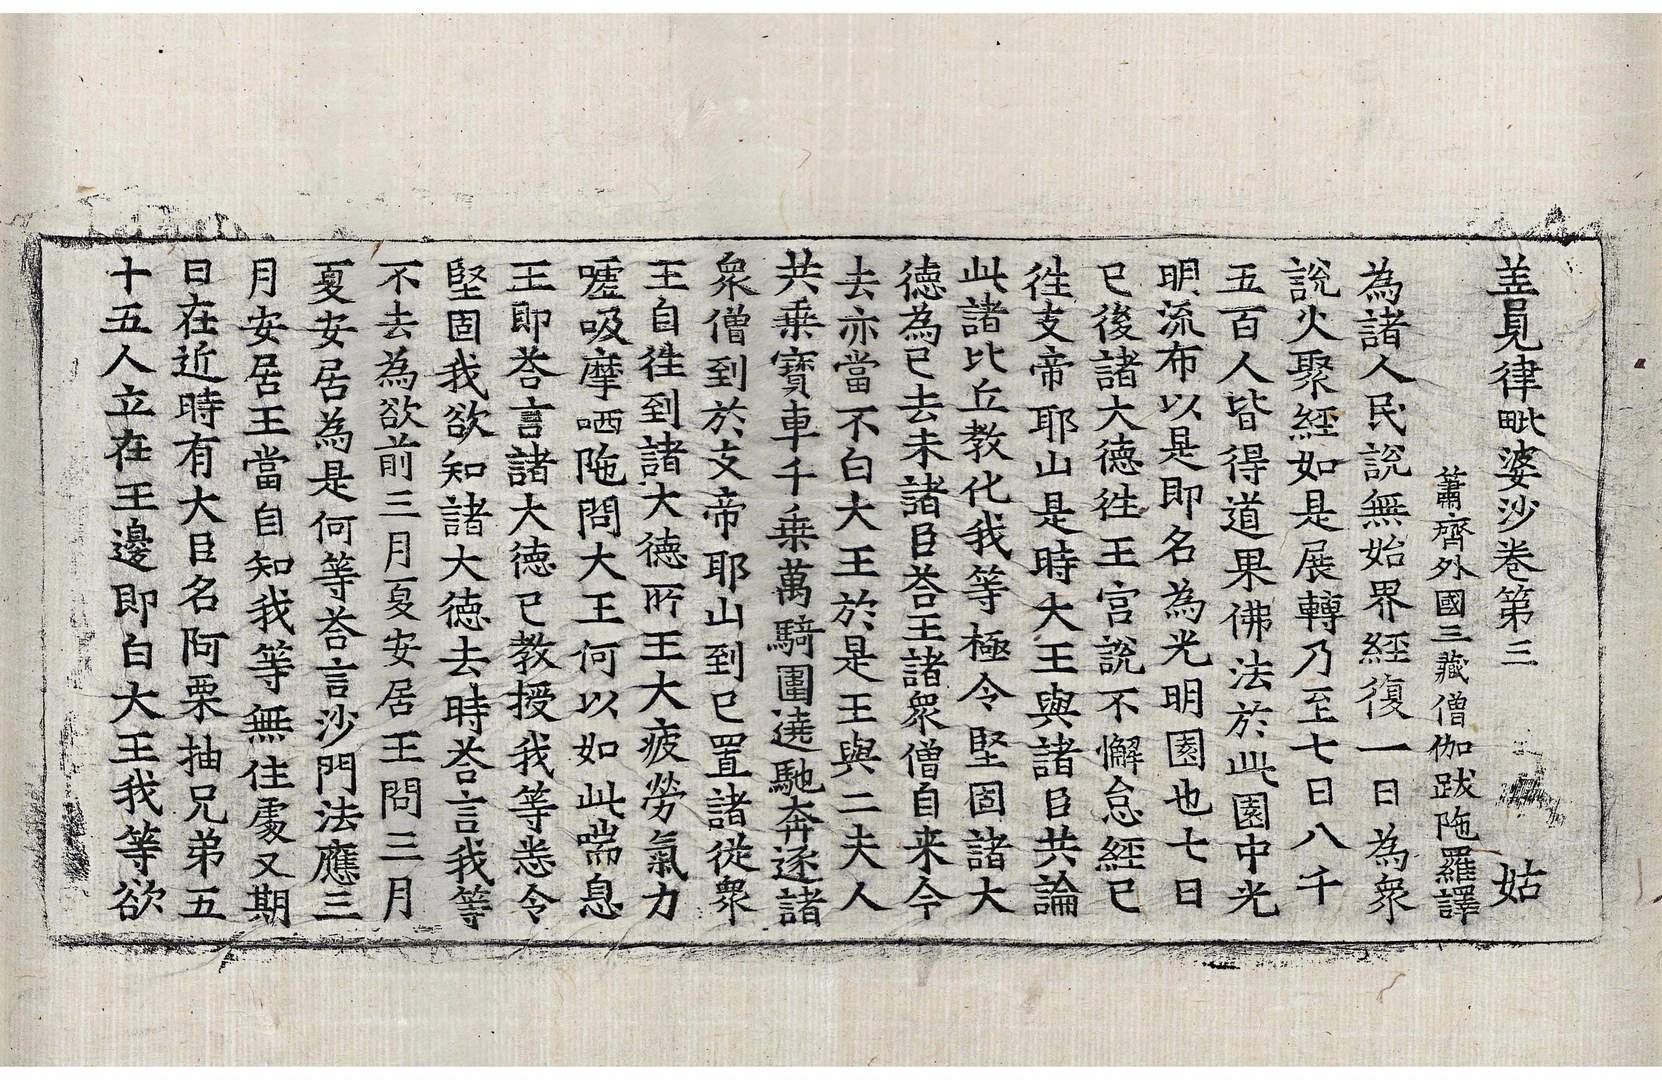 善見律毗婆沙卷第三 姑
蕭齊外國三藏僧伽跋陁羅譯
為諸人民說無始界經復一日為衆
說火聚經如是展轉乃至七日八千
五百人皆得道果佛法於此園中光
明流布以是即名為光明園也七日
已後諸大德徃王宮說不懈怠經已
徃支帝耶山是時大王與諸臣共論
此諸比丘教化我等極令堅固諸大
德為已去未諸臣荅王諸衆僧自来今
去亦當不白大王於是王與二夫人
共乗寶車千乗萬騎圍遶馳奔逐諸
衆僧到於支帝耶山到已置諸從衆
王自徃到諸大德所王大疲勞氣力
噓吸摩哂陁問大王何以如此喘息
王即荅言諸大德已教授我等悉令
堅固我欲知諸大德去時荅言我等
不去為欲前三月夏安居王問三月
夏安居為是何等荅言沙門法應三
月安居王當自知我等無住處又期
日在近時有大臣名阿栗抽兄弟五
十五人立在王邊即白大王我等欲